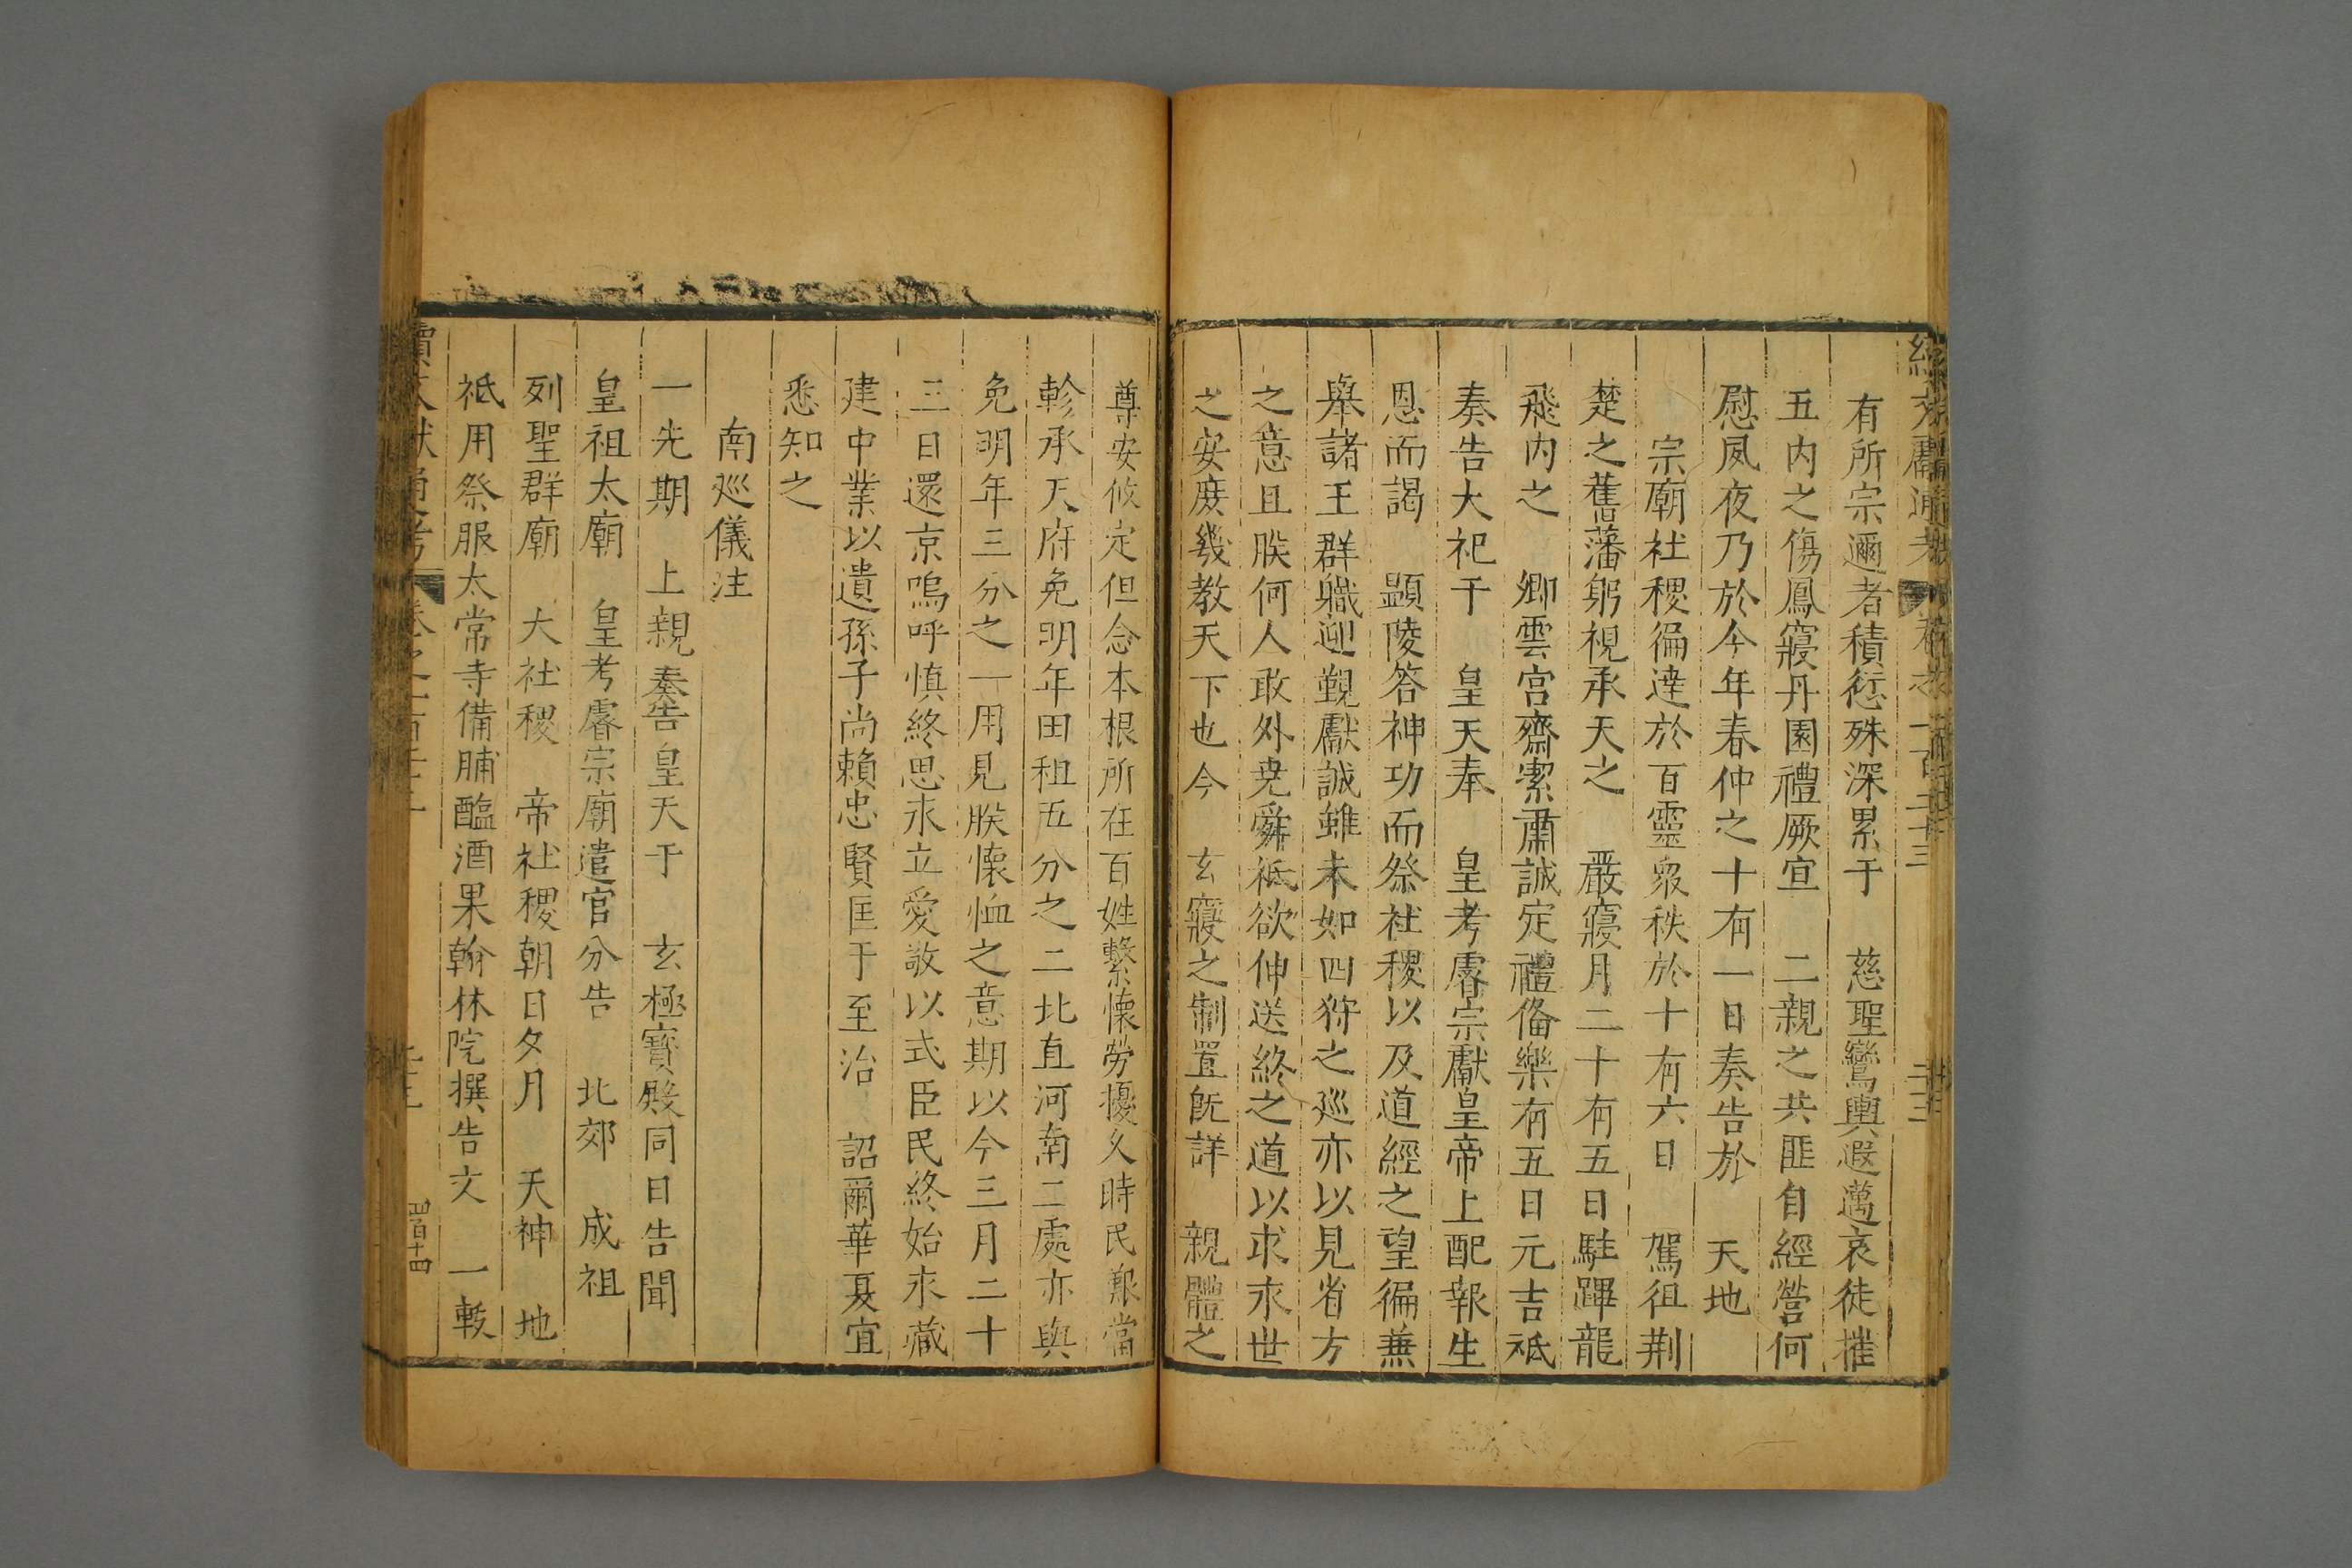 有所宗邇者積愆殊深累于 慈聖鸞輿遐邁哀徒摧
五内之傷鳳寢丹園禮厥宜 二親之共匪自經營何
慰夙夜乃於今年春仲之十有一日奏告於 天地
宗廟社稷徧達於百靈衆秩於十有六日 駕徂荆
楚之舊藩躬視承天之 嚴寢月二十有五日駐蹕龍
飛内之 卿雲宫齋潔肅誠定禮俻樂有五日元吉祗
奏告大祀于 皇天奉 皇考睿宗獻皇帝上配報生
恩而謁 顯陵答神功而祭社稷以及道經之望徧兼
舉諸王群職迎覲獻誠雖未如四狩之廵亦以見省方
之意且朕何人敢外尭舜祗欲伸送終之道以求永世
之安庶幾教天下也今 玄寢之制置旣詳 親體之
尊安攸定但念本根所在百姓繫懷勞擾久時民艱當
軫承天府免明年田租五分之二北直河南二處亦與
免明年三分之一用見朕懷恤之意期以今三月二十
三日還京嗚呼慎終思永立愛敬以式臣民終始永藏
建中業以遺孫子尚賴忠賢匡于至治 詔爾華夏宜
悉知之
南廵儀注
一先期 上親奏告皇天于 玄極寶殿同日告聞
皇祖太廟 皇考睿宗廟遣官分告 北郊 成祖
列聖群廟 大社稷 帝社稷朝日夕月 天神 地
祗用祭服太常寺備脯醢酒果翰林院撰告文 一敕
四百十四